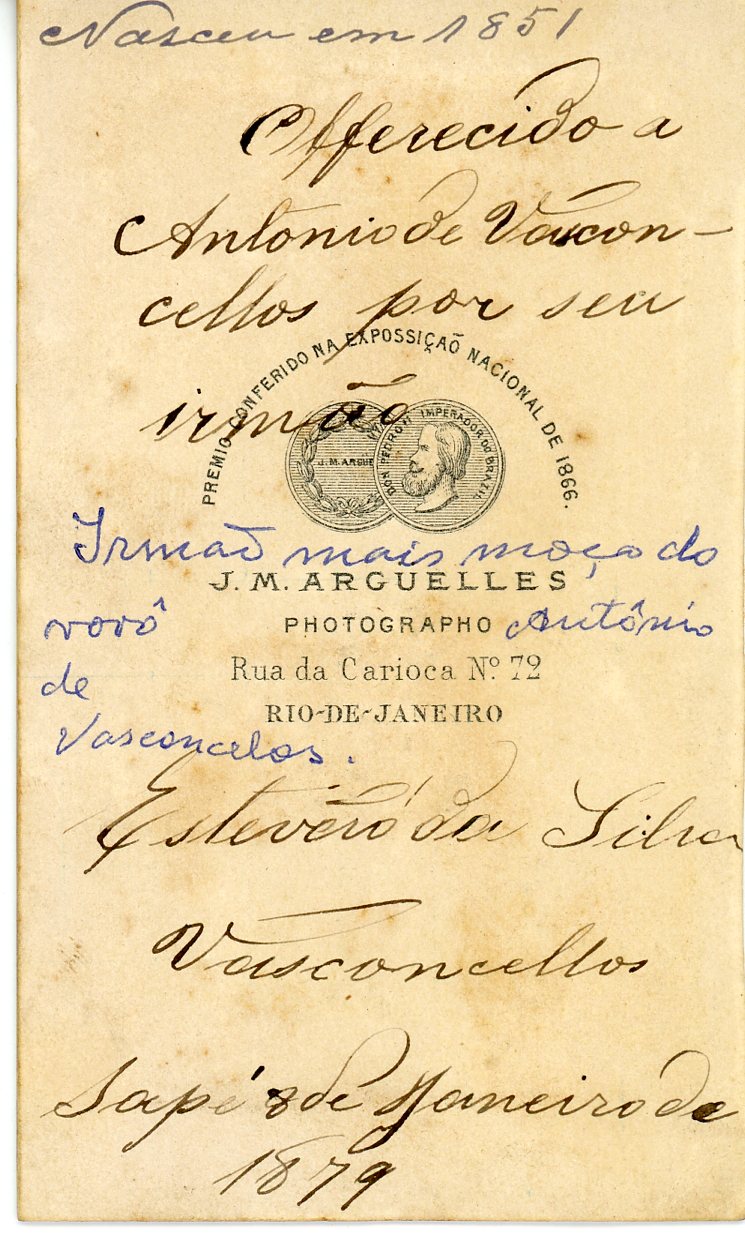 Nasceu em 1851
Offerecido a
Antonio de Vascon-
cellos por seu
irmão
PREMIO CONFERIDO NA EXPOSSIÇAÕ NACIONAL DE 1866.
J. M. ARGUE
DON PEDRO II IMPERADOR DO BRAZIL
Irmaõ mais moço do
J. M. ARGUELLES
vovô
PHOTOGRAPHO
Antônio
Rua da Carioca Nº 72
de
RIO-DE-JANEIRO
Vasconcelos.
Estevão da Silva
Vasconcellos
Sapé 8 de Janeiro de
1879